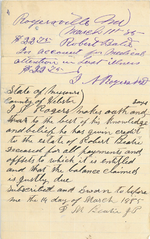 Rogersville Mo
March 1st 55
$22.25 Robert
To account for Medical
attention in last illness
$22.25
J. A. Rogers MD
State of Missouri
County of Webster
J. A. Rogers makes oath and
that to the best of his Knowledge
and belief he has given credit
to the estate of Robert
deceased for all payments and
offsets to which it is entitled
and that the balance claimed
is justly due
Subscribed and Sworn to before
me this day of March 1955
J P